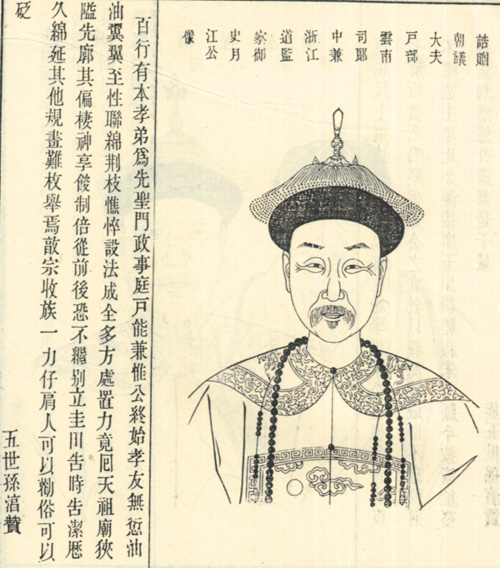 誥贈
朝議
大夫
戶部
雲南
司郎
中兼
浙江
道監
察御
史月
江公
像
百行有本孝弟爲先聖門政事庭戸能兼惟公終始孝友無愆油
油翼翼至性聯綿荆枝憔悴設法成全多方處置力竟囘天祖廟狹
隘先廓其偏棲神享餕制倍從前後恐不繼别立圭田吿時吿潔歷
久綿延其他規畫難枚舉焉敬宗收族一力仔肩人可以勸俗可以
砭
五世孫湻贊